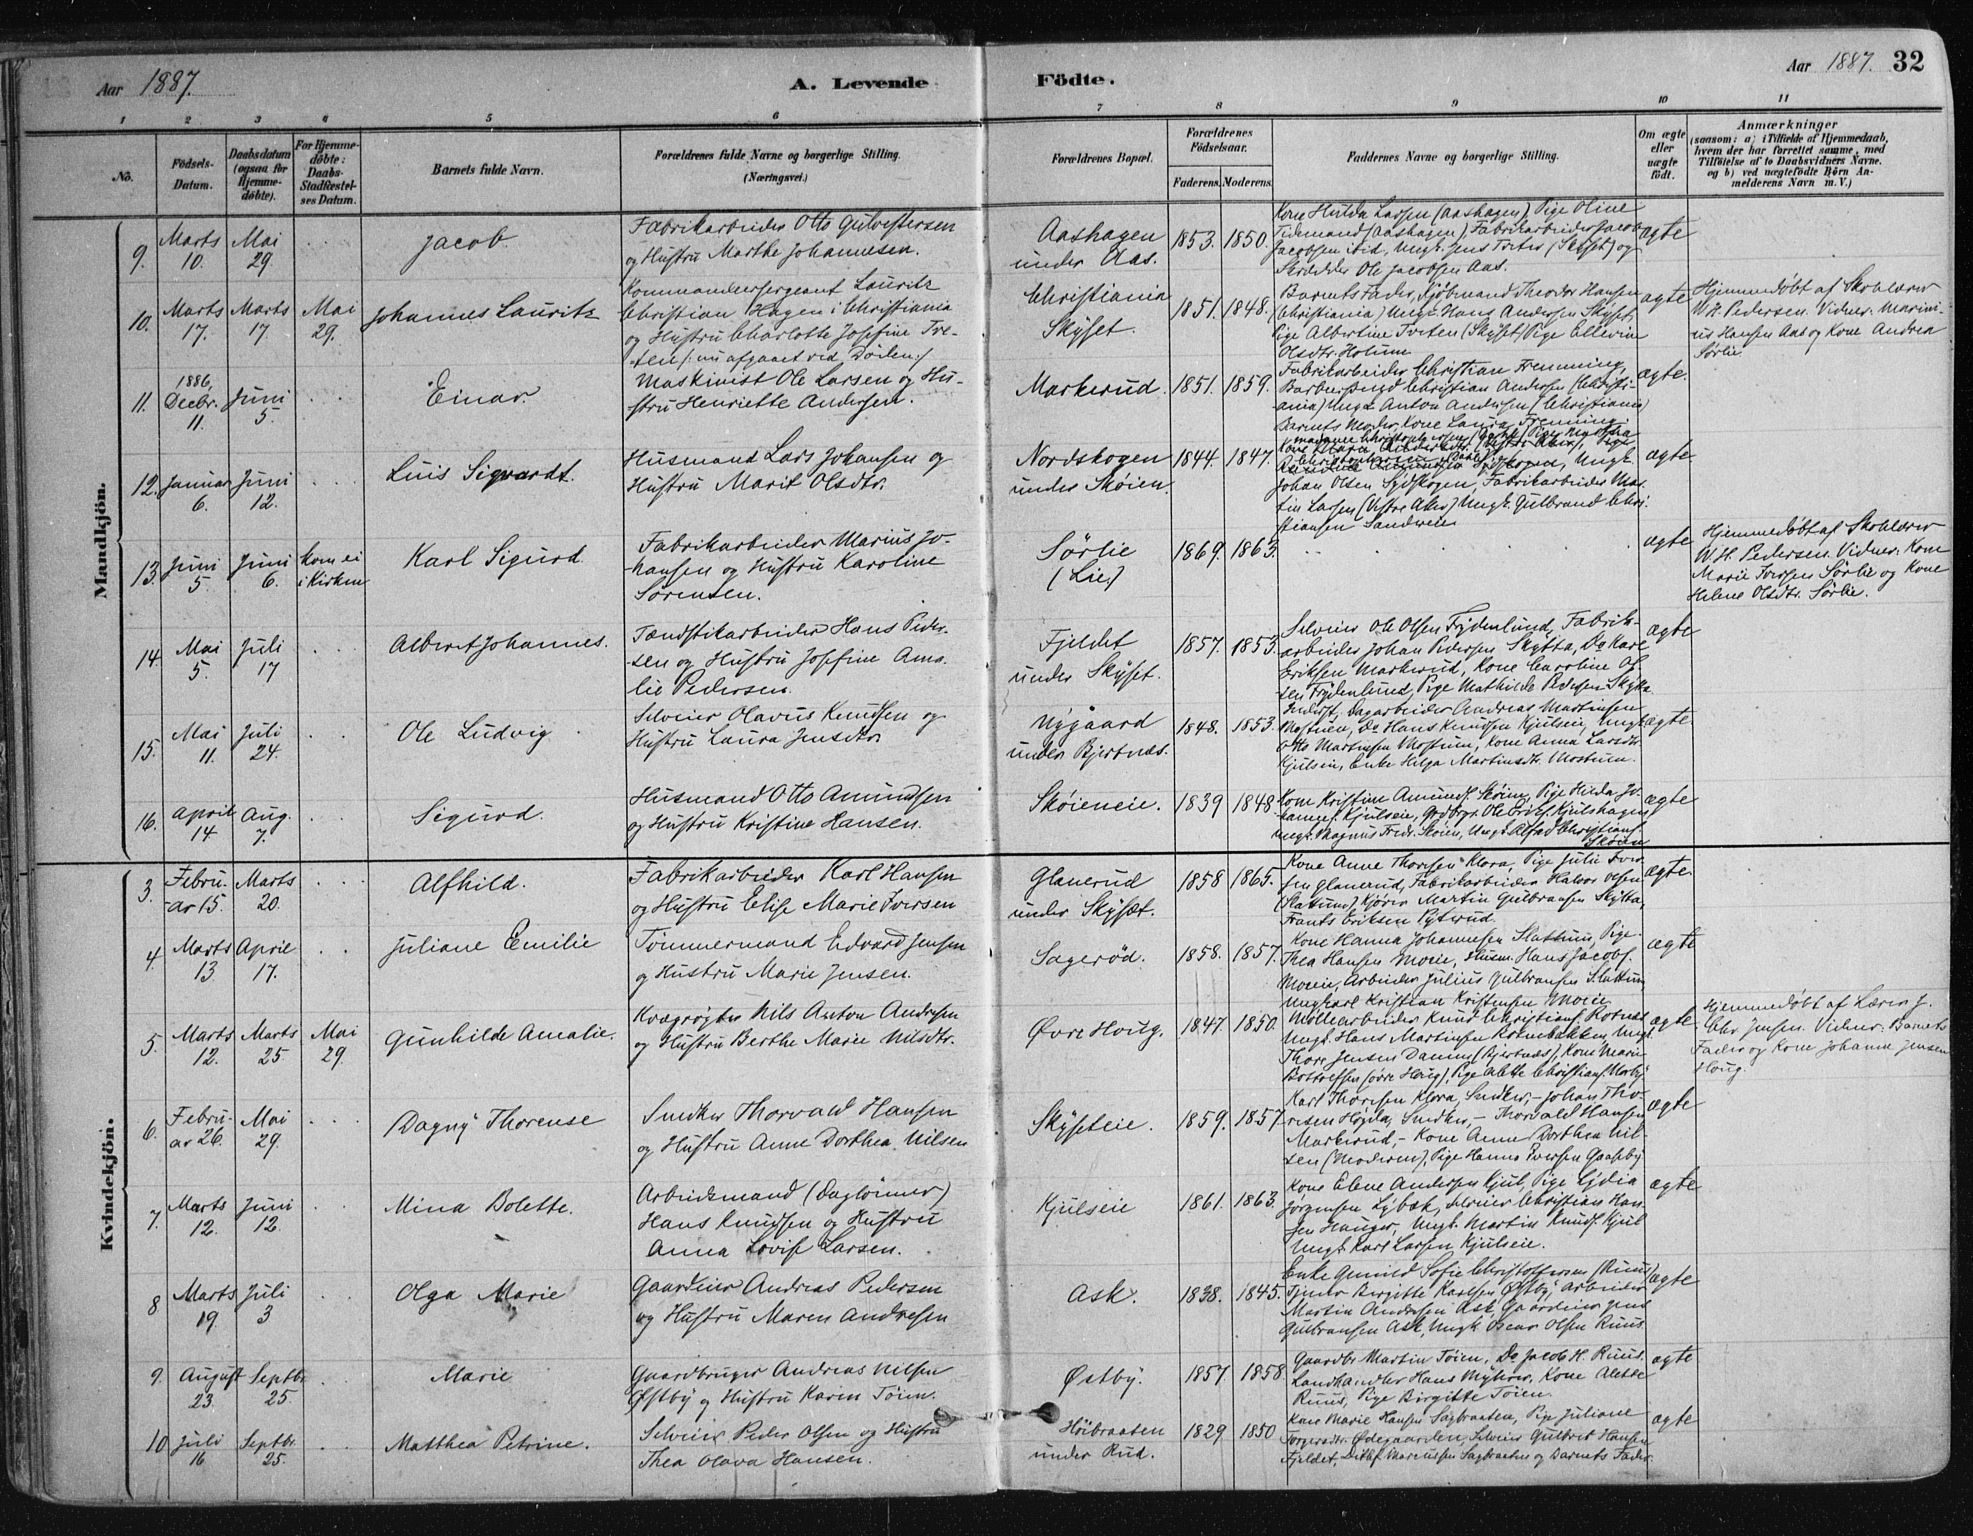 Aar 1887.
A. Levende Födte.
Aar 1887. 32
1 2 3 4 5 6 7 8 9 10 11
No.
Födsels-Datum.
Daabsdatum (ogsaa för Hjemmedöbte).
For Hjemmedöbte: Daabs-Stadfæstelses Datum.
Barnets fulde Navn.
Forældrenes fulde Navne og borgerlige Stilling. (Næringsvei.)
Forældrenes Bopæl.
Forældrenes Födselsaar.
Faderens. Moderens.
Faddernes Navne og borgerlige Stilling.
Om ægte eller uægte födt.
Anmærkninger
(saasom: a) i Tilfælde af Hjemmedaab,
hvem der har forrettet samme, med
Tilföielse af to Daabsvidners Navne.
og b) ved uægtefödte Börn An-
melderens Navn m. V.)
Mandkjön.
9. Marts 10. Mai 29. Jacob
Fabrikarbeider Otto Gulvestersen
og Hustru Marthe Johannesen.
Aashagen
under Aas.
1853. 1850.
Kone Hulda Larsen (Aashagen), Pige Oline
Tidemand (Aashagen), Fabrikarbeider Jacob
Jacobsen ibid, Ungk. Jens Tveter (Skyset) og
Skrædder Ole Jacobsen Aas.
ægte
10. Marts 17. Marts 17. Mai 29. Johannes Lauritz
Kommandeersergeant Lauritz
Christian Hagen i Christiania
og Hustru Charlotte Josefine Tve-
-ten /: nu afgaaet ved Døden :/
Christiania
Skyset.
1851. 1848.
Barnets Fader, Kjøbmand Theodor Hansen
(Christiania) Ungk. Hans Andersen Skyset,
Pige Albertine Tveten (Skyset) Pige Ellevine
Olsdtr. Holum
ægte
Hjemmedøbt af Skolelærer
W.H. Pedersen. Vidner: Marini-
us Hansen Aas og Kone Andrea
Sørlie
11. 1886, Decbr. 11 Juni 5. Einar.
Maskinist Ole Larsen og Hu-
stru Henriette Andersen.
Markerud.
1851. 1859.
Fabrikarbeider Christian Fremming,
Barber Svend Christian Andersen (Christi-
ania) Ungk. Anton Andersen (Christiania)
Barnets Moder, Kone Laura Fremming
ægte.
12. Januar 6. Juni 12. Luis Sigvardt.
Husmand Lars Johansen og
Hustru Marit Olsdtr.
Nordskogen
under Skøien.
1844. 1847.
Johan Olsen Sydskogen, Fabrikarbeider Mar-
tin Larsen (Vestre Aker) Ungk. Gulbrand Chri-
stiansen Sandveier
ægte
13. Juni 5. Juni 6. kom ei i Kirken Karl Sigurd
Fabrikarbeider Marius Jo-
hansen og Hustru Karoline
Sørensen.
Sørlie
(Lie.)
1869. 1863.
ægte
Hjemmedøbt af Skolelærer
W.H. Pedersen. Vidner: Kone
Marie Iversen Sørlie og Kone
Helene Olsdtr. Sørlie.
14. Mai 5. Juli 17 Albert Johannes.
Tændstikarbeider Hans Peder-
-sen og Hustru Josefine Ama-
lie Pedersen.
Fjeldet
under Skyset.
1857. 1853.
Selveier Ole Olsen Frydenlund, Fabrik-
arbeider Johan Pedersen Skytta, Do Karl
Eriksen Markerud, Kone Caroline Ol-
sen Frydenlund, Pige Mathilde Pedersen Skytta
ægte
15. Mai 11. Juli 24. Ole Ludvig
Selveier Olavus Knudsen og
Hustru Laura Jensdtr.
Nygaard
under Bjertnæs.
1848. 1853.
Dagarbeider Andreas Martinsen
Mostuen, Do Hans Knudsen Kjulseie, Ungk.
Otto Martinsen Mostuen, Kone Anna Larsdtr.
Kjulseie, Enke Helga Martinsdtr. Mostuen.
ægte.
16. April 14 Aug. 7. Sigurd.
Husmand Otto Amundsen
og Hustru Kristine Hansen.
Skøieneie.
1839 1848
Kone Kristine Amunds. Skøien, Pige Hulda Jo-
hannes. Kjulseie, Grdbrgr. Ole Eriks. Kjulshagen
Ungk. Magnus Fredr. Skøien, Ungk. Alfred Christians.
Skøien
ægte
Kvindekjön.
3. Febru-ar 15. Marts 20. Alfhild.
Fabrikarbeider Karl Hansen
og Hustru Elise Marie Iversen
Glanerud
under Skyset.
1858 1865.
Kone Anne Thoresen Klora, Pige Julie Iver-
sen Glanerud, Fabrikarbeider Halvor Olsen
(Slattum) Kjører Martin Gulbransen Skytta,
Frants Eriksen Rytrud.
ægte.
4. Marts 13 April 17. Juliane Emilie
Tømmermand Edvard Jensen
og Hustru Marie Jensen.
Sagerød.
1858. 1857.
Kone Hanna Johannesen Slattum, Pige
Thea Hansen Moeie, Husm. Hans Jacobs.
Moeie, Arbeider Julius Gulbransen Slattum
Ungk. Karl Kristian Kristensen Moeie
ægte
5. Marts 12. Marts 25. Mai 29. Gunhilde Amalie.
Kvægrøgter Nils Anton Andresen
og Hustru Berthe Marie Nilsdtr.
Øvre Houg.
1847. 1850.
Møllearbeider Knud Christians. Rotnæs
Ungk. Hans Martinsen Rotnesbakken, Ungk.
Thore Jensen Damm (Bjertnæs), Kone Marie
Bottolfsen (øvre Houg), Pige Alette Christians. Morby
ægte
Hjemmedøbt af Lærer J.
Chr. Jensen. Vidner: Barnets
Fader og Kone Johanne Jensen
Houg.
6. Febru-ar 26. Mai 29. Dagny Thorense
Snedker Thorvald Hansen
og Hustru Anne Dorthea Nilsen
Skyseteie.
1859. 1857
Karl Thoresen Klora, Snedker, - Johan Tho-
resen Højda, Snedker, - Thorvald Hansen
Markerud, - Kone Anne Dorthea Nil-
sen (Moderen), Pige Hanna Iversen Gaaseby
ægte
7. Marts 12. Juni 12. Mina Bolette.
Arbeidsmand (Dagløn­ner)
Hans Knudsen og Hustru
Anna Lovise Larsen.
Kjulseie
1861. 1863.
Kone Elene Andersen Kjul, Pige Lydia
Jørgensen Lybæk, Selveier Christian Han-
sen Hauger, Ungk. Martin Knuds. Kjul
Ungk. Karl Larsen Kjulseie.
ægte
8 Marts 19. Juli 3 Olga Marie
Gaardeier Andreas Pedersen
og Hustru Maren Andresen
Ask.
1838. 1845.
Enke Gunild Sofie Christoffersen (Ruus)
Tjener Birgitte Karlsen Østby, Arbeider
Martin Andersen Ask, Gaardeier Jens
Gulbransen Ask, Ungk. Oscar Olsen Ruus
ægte
9. August 23 Septbr. 25. Marie
Gaardbruger Andreas Nilsen
Østby og Hustru Karen Tøien.
Østby.
1857. 1858.
Gaardbr. Martin Tøien, Do Jacob H. Ruus.
Landhandler Hans Myhrer, Kone Alette
Ruus, Pige Birgitte Tøien.
ægte
10 Juli 16 Septbr. 25. Matthea Petrine.
Selveier Peder Olsen og Hustru
Thea Olava Hansen.
Høibraaten
under Rud.
1829 1850
Kone Marie Hansen Sagbraaten, Pige Juliane
Torgersdtr. Ødegaarden, Selveier Gulbret Hansen
Fjeldet, Ditlef Marcussen Sagbraaten og Barnets Fader.
ægte